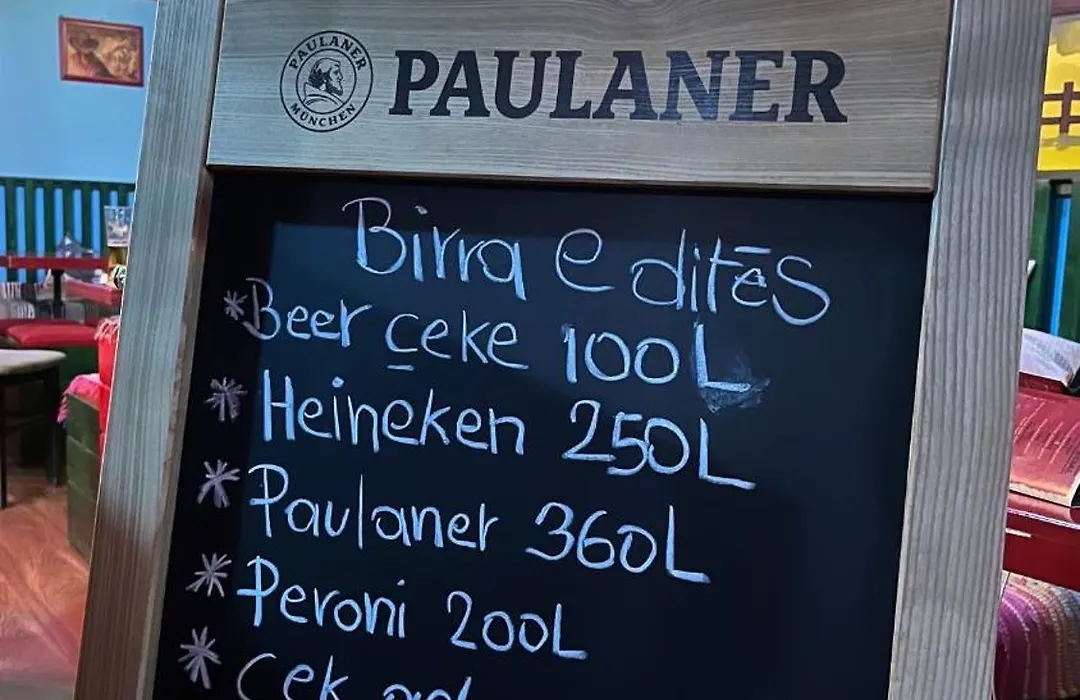 PAULANER MÜNCHEN
PAULANER
Birra e ditēs
*Beer çeke 100L
*Heineken 250L
*Paulaner 360L
*Peroni 200L
*Çek